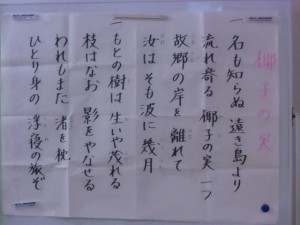 椰子の実
一 名も知らぬ 遠き島より
流れ寄る 椰子の実一つ
故郷の岸を 離れて
汝はそも波に 幾月
一 もとの樹は 生いや茂れる
枝はなお 影をやなせる
われもまた 渚を枕
ひとり身の 浮寝の旅ぞ